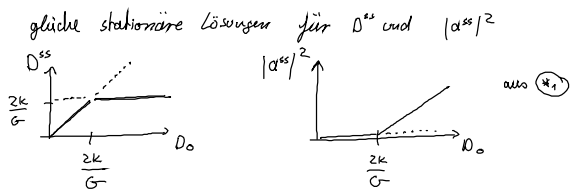 gleiche stationäre Lösungen für D^ss und |α^ss|²
D^ss
2κ/G
2κ/G
D₀
|α^ss|²
2κ/G
D₀
aus *₁